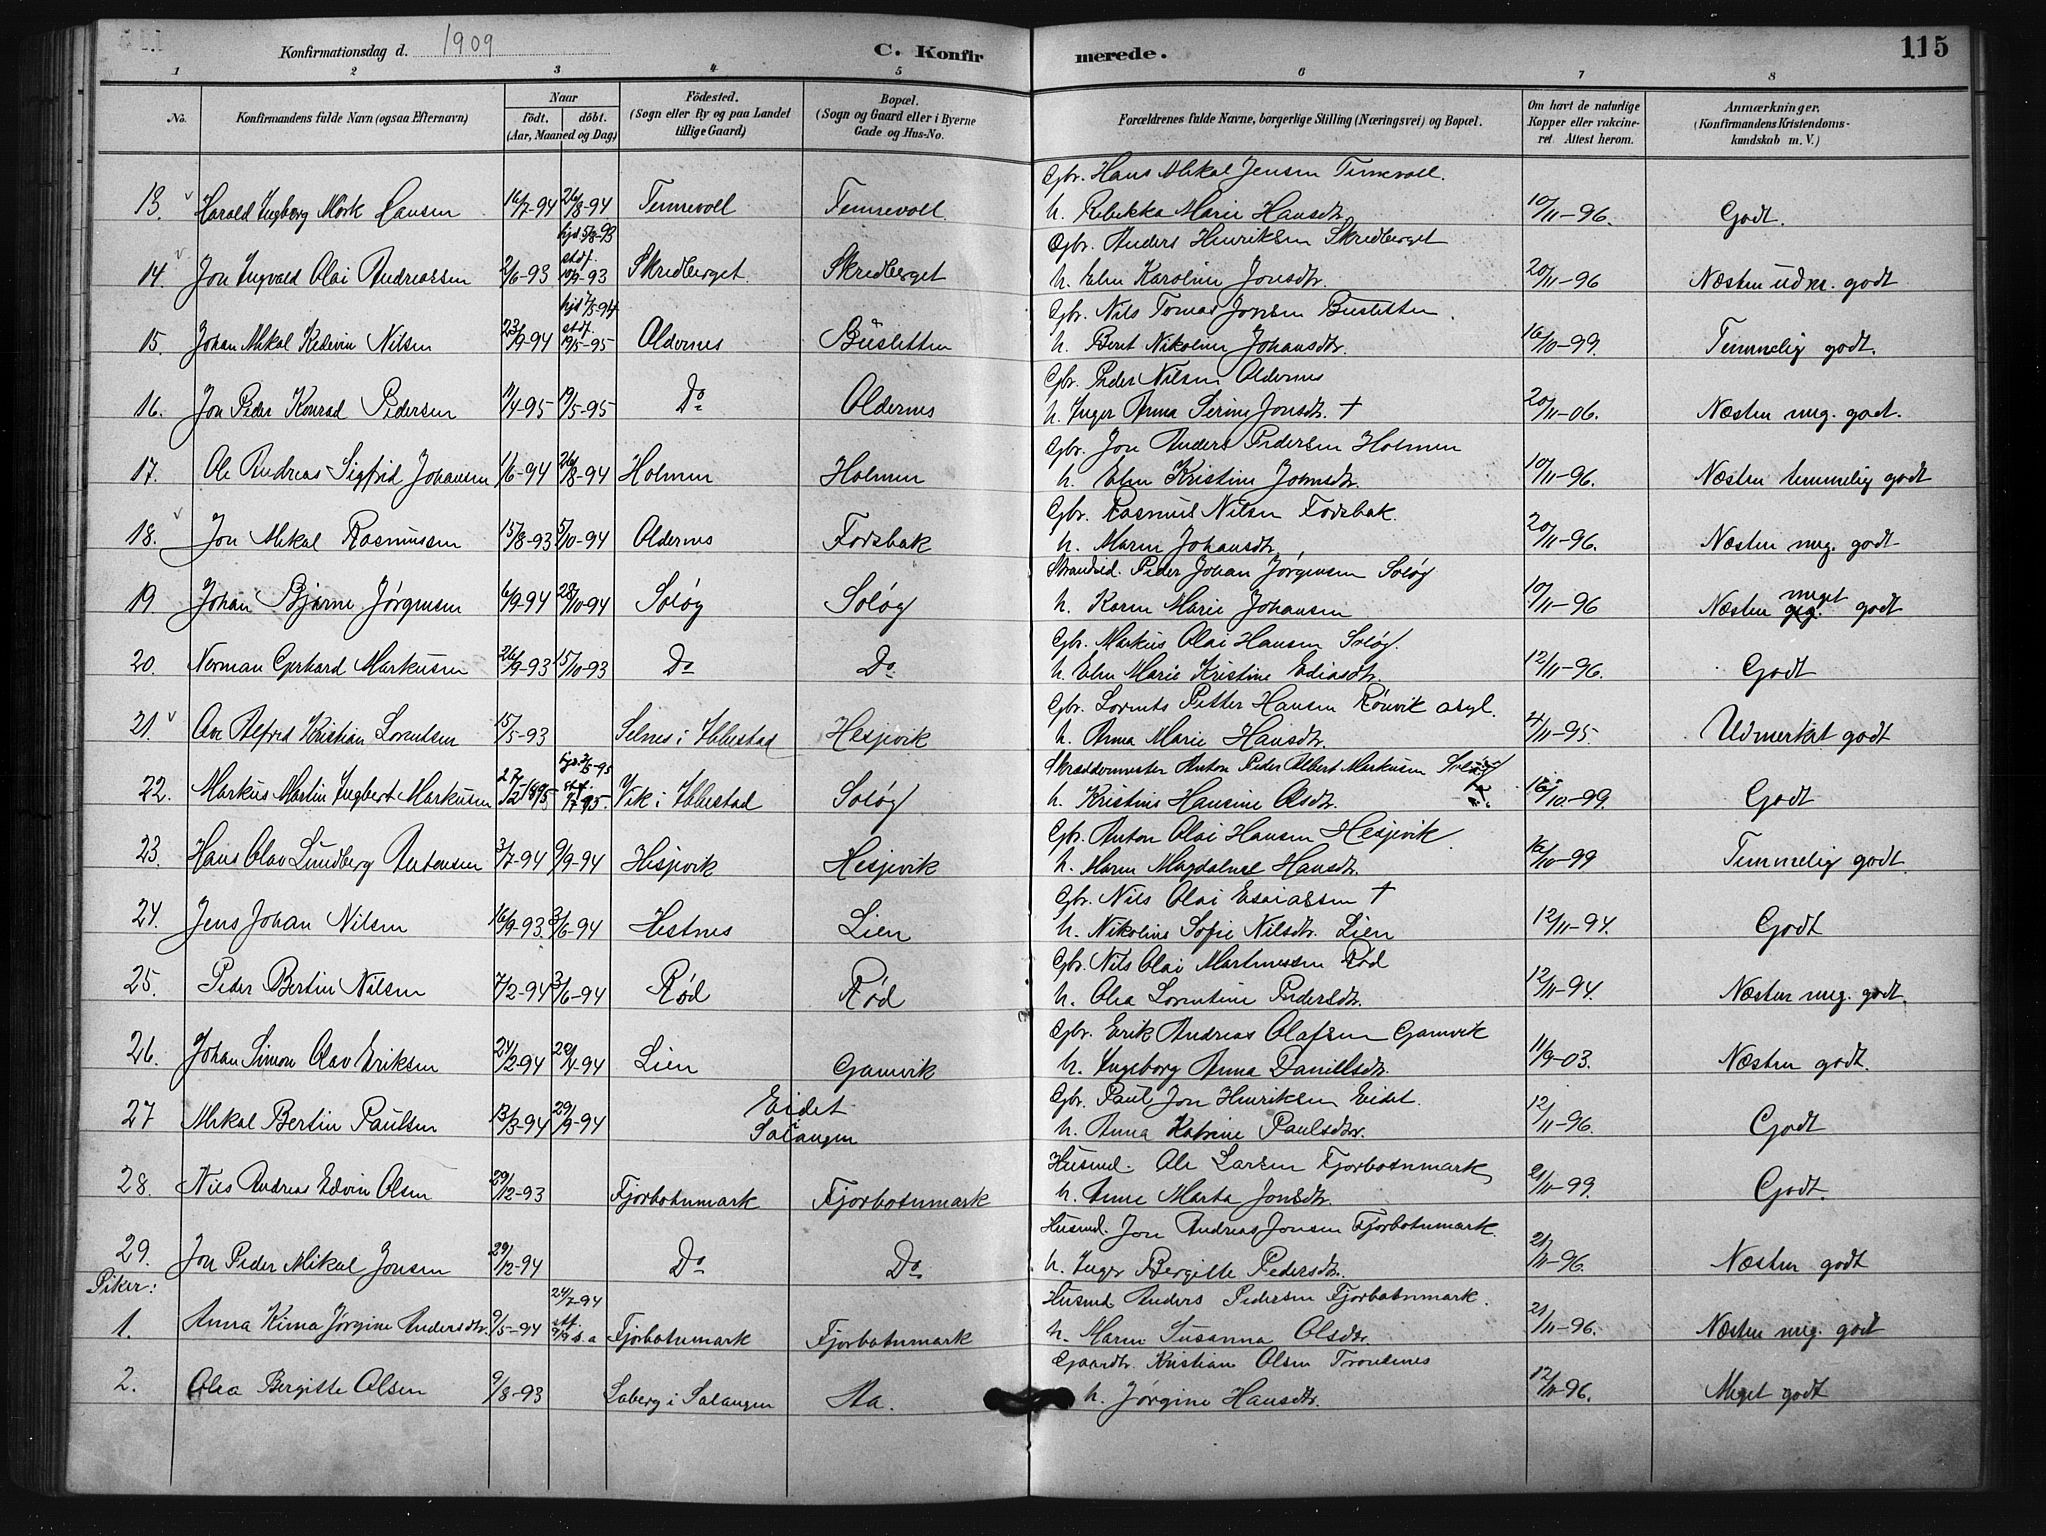 Konfirmationsdag d. 1909 C. Konfirmerede. 115
1 2 3 4 5 6 7 8
No. Konfirmandens fulde Navn (ogsaa Efternavn) Naar födt. döbt. (Aar, Maaned og Dag) Födested. (Sogn eller By og paa Landet tillige Gaard) Bopæl. (Sogn og Gaard eller i Byerne Gade og Hus-No. Forældrenes fulde Navne, borgerlige Stilling (Næringsvei) og Bopæl. Om havt de naturlige Kopper eller vakcineret. Attest herom. Anmærkninger. (Konfirmandens Kristendomskundskab m. V.)
Gbr. Hans Mikal Jensen Tennevoll.
13. Harald Ingberg Mørk Hansen 16/7-94 26/8-94 Tennevoll Tennevoll h. Rebekka Marie Hansdtr. 10/11-96. Godt.
hjd 5/8-93 Gbr. Anders Henriksen Skredberget
14. Jon Ingvald Olai Andreassen 2/6-93 stdf. 10/9-93 Skredberget Skredberget h. Elen Karoline Jonsdtr. 20/11-96 Næsten udm. godt
Gbr. Nils Tomas Jonsen Busletten
15. Johan Mikal Nilsen 23/9-94 stdf. 19/5-95 Oldernes Busletten h. Berit Nikoline Johansdtr. 16/10-99. Temmelig godt.
Gbr. Peder Nilsen Oldernes
16. Jon Peder Konrad Pedersen 11/4-95 19/5-95 Do Oldernes h. Inger Anna Serine Jonsdtr. † 20/11-06. Næsten meg. godt.
Gbr. Jon Anders Pedersen Holmen
17. Ole Andreas Sigfrid Johansen 1/6-94 26/8-94 Holmen Holmen h. Elen Kristine Johnsdtr. 10/11-96. Næsten temmelig godt
Gbr. Rasmus Nilsen Fossbak.
18. Jon Mikal Rasmussen 15/8-93 5/10-94 Oldernes Fossbak h. Maren Johansdtr. 20/11-96. Næsten meg. godt
Strandsd. Peder Johan Jørgensen Soløy
19 Johan Bjarne Jørgensen 6/9-94 28/10-94 Soløy Soløy h. Karen Marie Johansen 10/11-96 Næsten meget godt
Gbr. Markus Olai Hansen Soløy.
20. Norman Gerhard Markusen 26/9-93 15/10-93 Do Do h. Elen Marie Kristine Ediasdtr. 12/11-96. Godt
Gbr. Lorents Petter Hansen Rønvik asyl.
21. Ove Alfred Kristian Lorentsen 15/5-93 Selnes i Ibbestad Hesjevik h. Anna Marie Hansdtr. 4/11-95. Udmerket godt
Skræddermester Anton Peder Albert Markusen Soløy
22. Markus Martin Ingbert Markusen Vik i Ibbestad Soløy h. Kristine Hansine Olsdtr. 16/10-99. Godt
Gbr. Anton Olai Hansen Hesjevik.
23. Hans Olav Lundberg Antonsen 3/7-94 9/9-94 Hesjevik Hesjevik h. Maren Magdalene Hansdtr. 16/10-99 Temmelig godt.
Gbr. Nils Olai Esaiassen †
24. Jens Johan Nilsen 16/9-93. 3/6-94 Hestnes Lien h. Nikoline Sofie Nilsdtr. Lien 12/11-94. Godt
Gbr. Nils Olai Martinussen Rød
25. Peder Bertin Nilsen 7/2-94 3/6-94 Rød Rød h. Olea Lorentine Pedersdtr. 12/11-94. Næsten meg. godt.
Gbr. Erik Andreas Olafsen Gamvik
26. Johan Simon Olav Eriksen 24/2-94 29/4-94 Lien Gamvik h. Ingeborg Anna Daniellsdtr. 11/9-03. Næsten godt.
Gbr. Paul Jon Henriksen Eidet.
27 Mikal Bertin Paulsen 13/3-94 29/9-94 Eidet Salangen h. Anna Katrine Paulsdtr. 12/11-96. Godt
Husmd. Ole Larsen Fjorbotnmark
28. Nils Andreas Edvin Olsen 29/12-93 Fjorbotnmark Fjorbotnmark h. Anne Marta Jonsdtr. 21/11-99. Godt.
Husmd. Jon Andreas Jonsen Fjorbotnmark.
29. Jon Peder Mikal Jonsen 29/12-94 Do Do h. Inger Bergitte Pedersdtr. 21/11-96. Næsten godt
Piker: 24/7-94 Husmd Anders Pedersen Fjorbotnmark.
1. Anna Kima Jørgine Andersdtr. 9/5-94 stf. 9/9 s.a Fjorbotnmark Fjorbotnmark h. Maren Susanna Olsdtr. 21/11-96. Næsten meg. godt
Gaardbr. Kristian Olsen Trondenes
2. Olea Bergitte Olsen 9/8-93 Laberg i Salangen Aa. h. Jørgine Hansdtr. 12/11-96. Meget godt